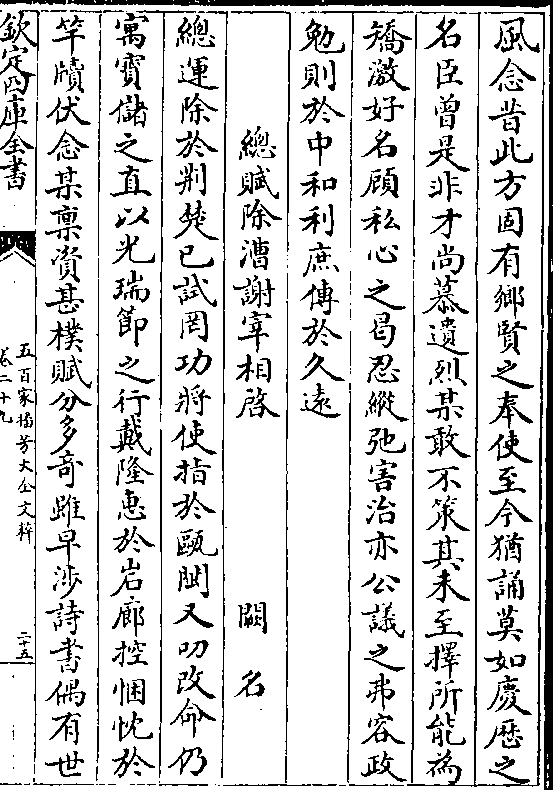 風念昔此方固有鄉賢之奉使至今猶誦莫如慶歴之
名臣曽是非才尚慕遺烈某敢不策其未至擇所能為
矯激好名顧私心之曷忍縱弛害治亦公議之弗容政
勉則於中和利庶傳於久遠
總賦除漕謝宰相啓　闕名
總運除於荆楚已試罔功將使指於甌閩又叨改命仍
寓寳儲之直以光瑞節之行戴隆惠於岩廊控悃忱於
竿牘伏念某禀資甚樸賦分多竒雖早涉詩書偶有世
欽定四庫全書
五百家播芳大全文粹
卷二十九
二十五